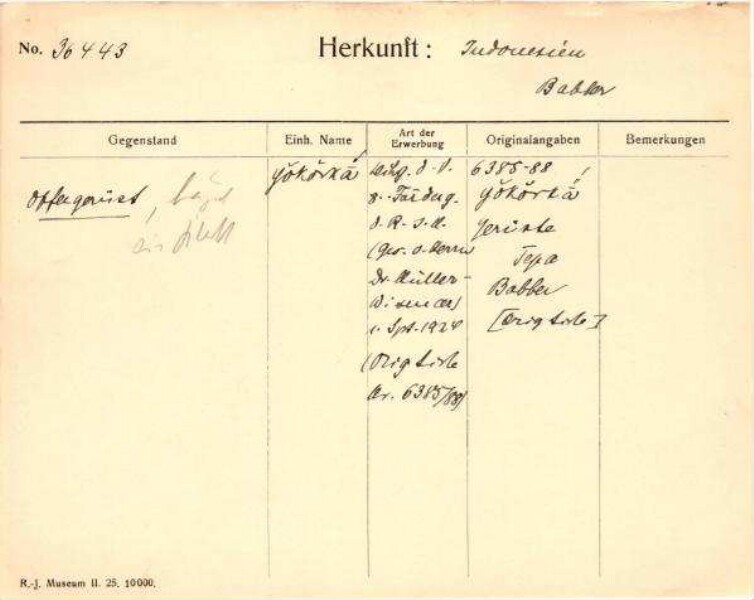 No. 36443
Herkunft: Indonesien
Babber
Gegenstand
Einh. Name
Art der Erwerbung
Originalangaben
Bemerkungen
Opfergerüst,
yŏkŏrkā
d. V.
z. Förderg.
d. R-J-M.
(Ges. d. Herrn
Dr. Müller-
Wismar)
1. Sept. 1924
(Orig liste
Nr. 6385/88)
6385-88
yŏkŏrkā
Gerüste
Tepa
Babber
[Orig liste]
R.-J. Museum II. 25. 10000.